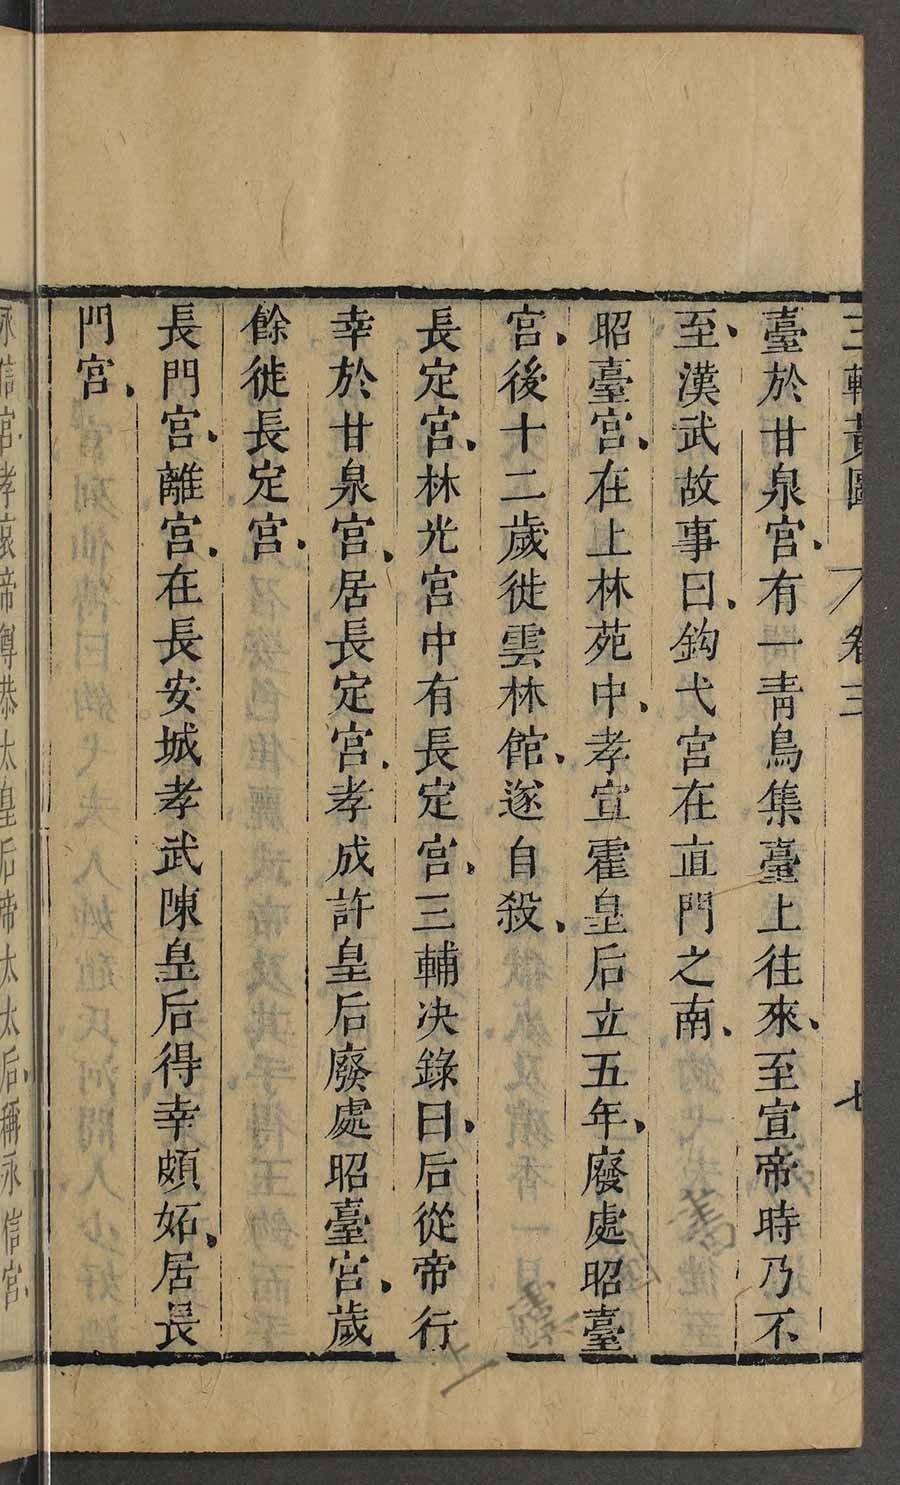 三輔黃圖 卷三 七
臺於甘泉宮、有一靑鳥集臺上往來、至宣帝時乃不
至、漢武故事曰、鈎弋宮在直門之南、
昭臺宮、在上林苑中、孝宣霍皇后立五年、廢處昭臺
宮、後十二歲徙雲林館、遂自殺、
長定宮、林光宮中有長定宮、三輔决錄曰、后從帝行
幸於甘泉宮、居長定宮、孝成許皇后廢處昭臺宮、歲
餘徙長定宮、
長門宮、離宮、在長安城孝武陳皇后得幸頗妬、居長
門宮、
永信宮、孝哀帝尊恭太皇后帝太太后、稱永信宮